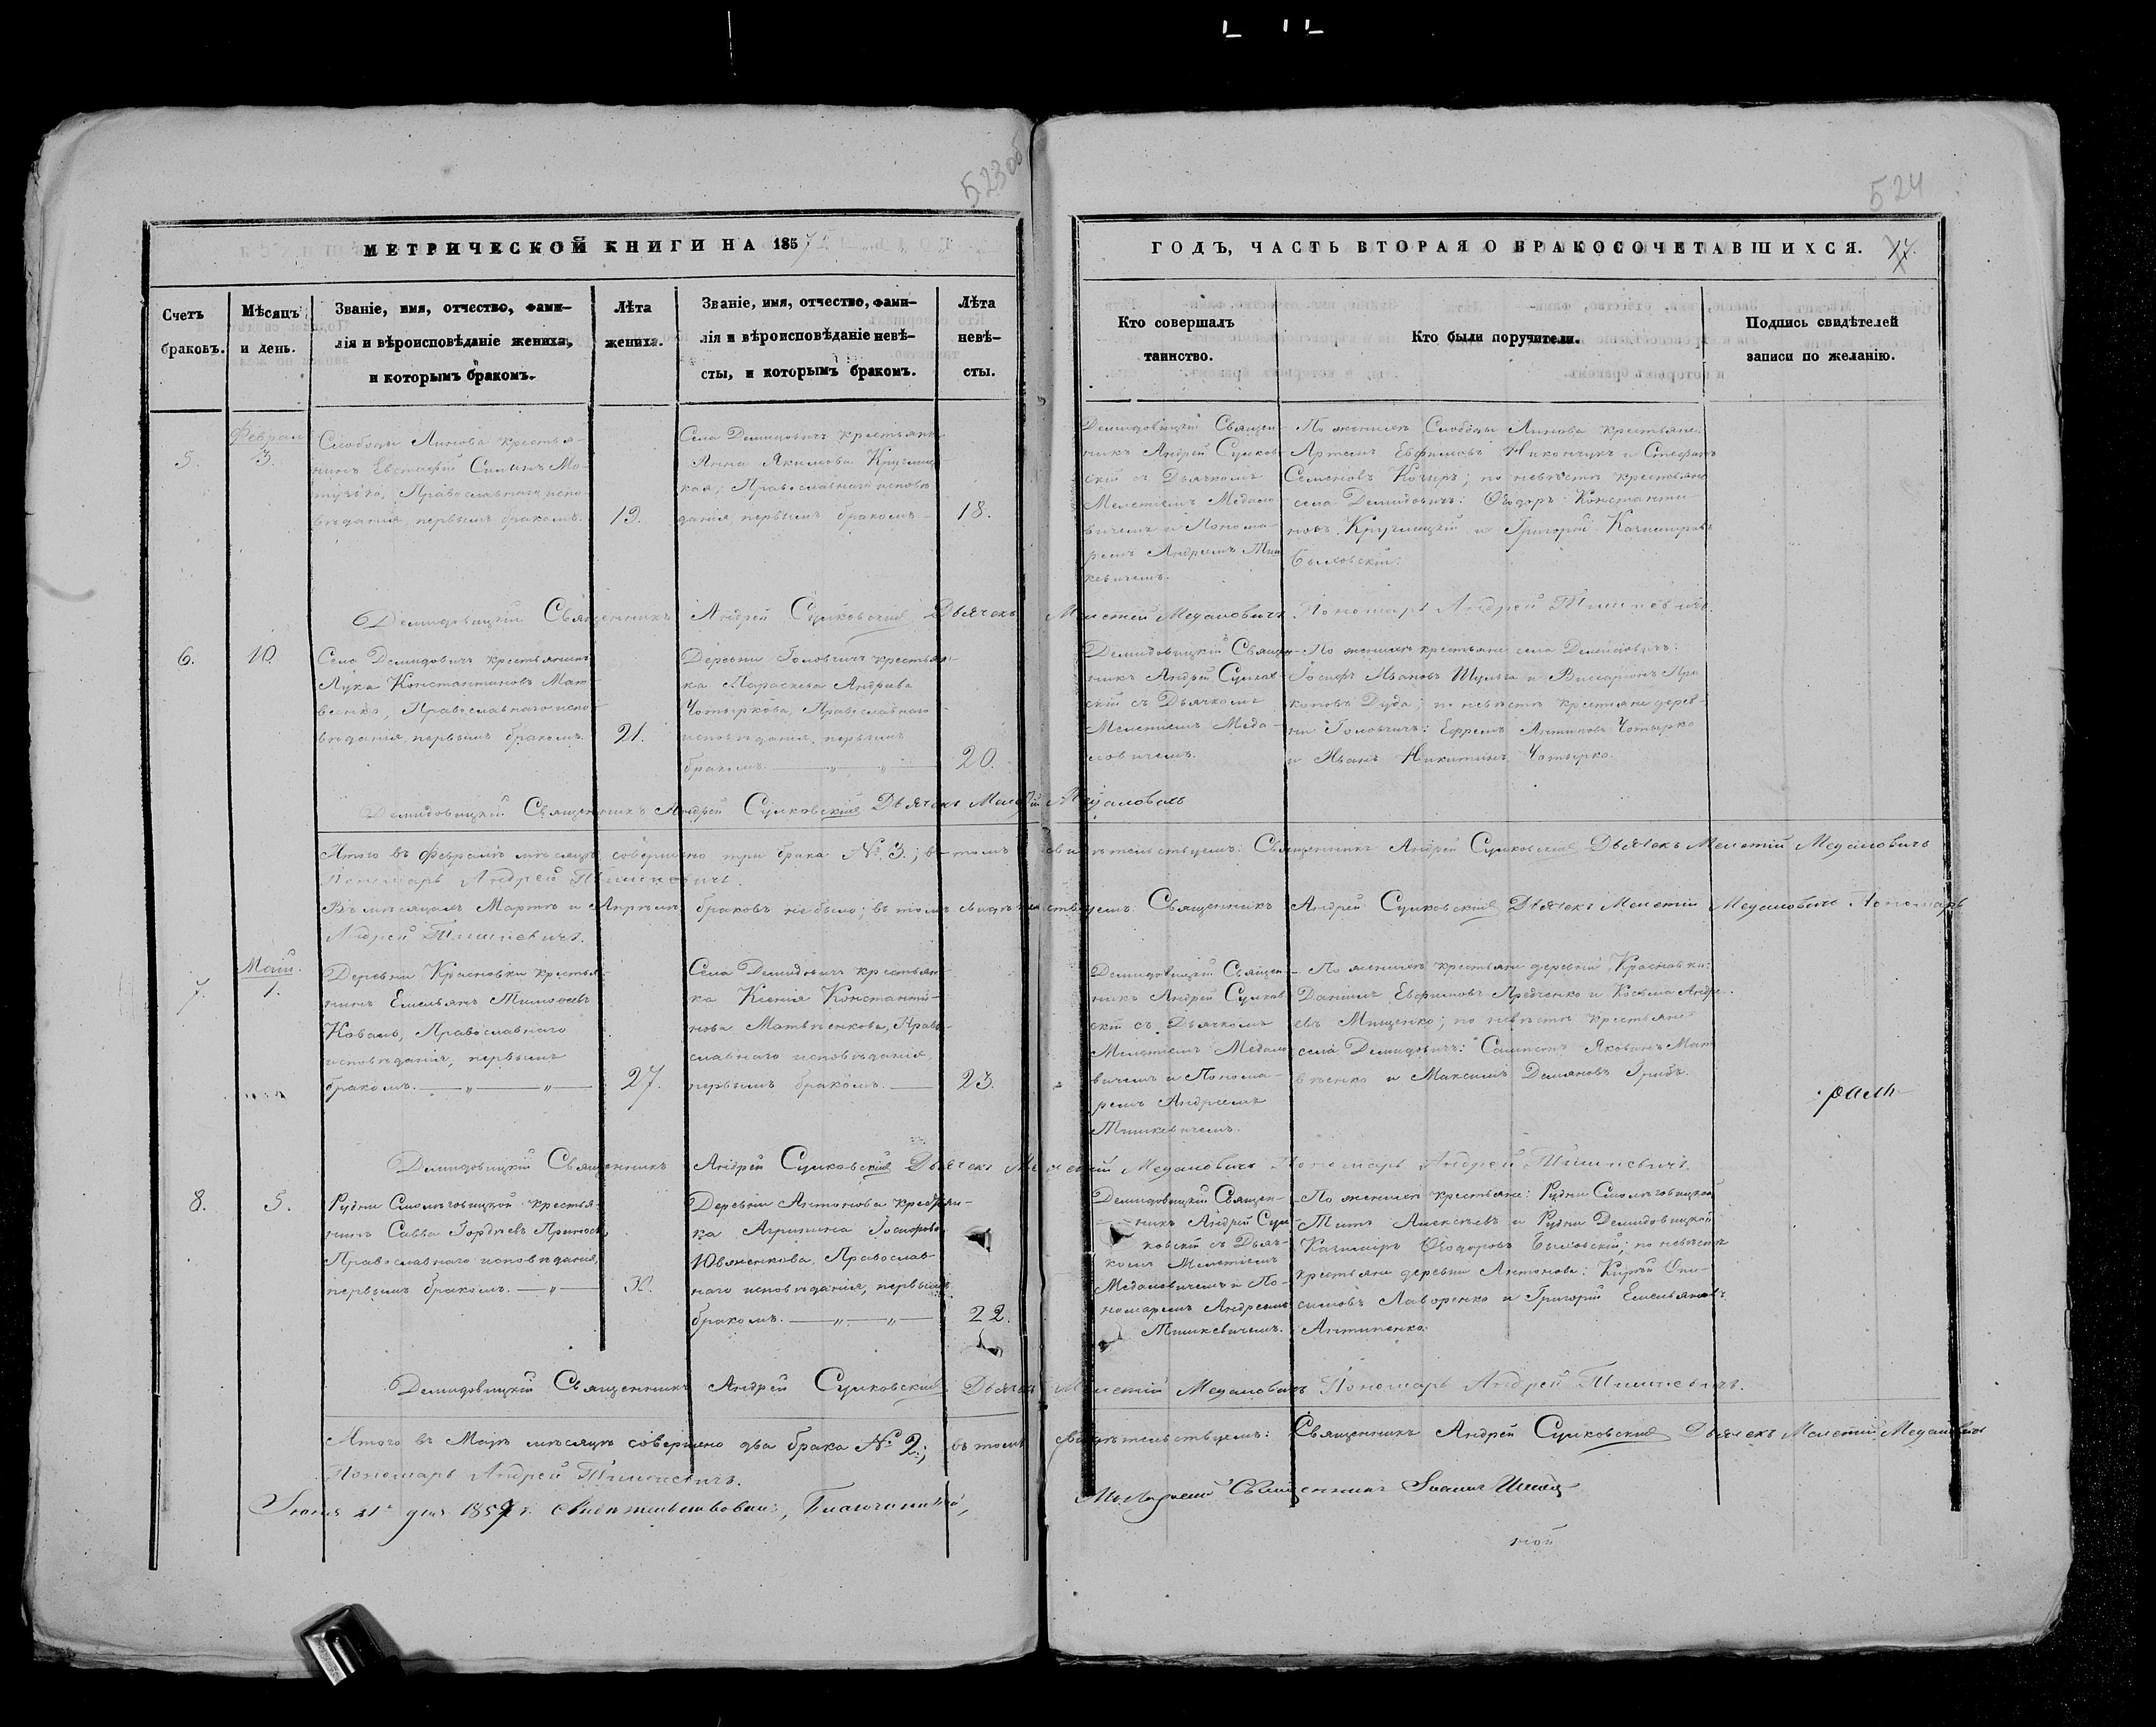 523 об
524
МЕТРИЧЕСКОЙ КНИГИ НА 1857
ГОДЪ, ЧАСТЬ ВТОРАЯ О БРАКОСОЧЕТАВШИХСЯ.
17.
Счетъ
браковъ.
Мѣсяцъ
и день.
Званіе, имя, отчество, фами-
лія и вѣроисповѣданіе жениха,
и которымъ бракомъ.
Лѣта
жениха.
Званіе, имя, отчество, фами-
лія и вѣроисповѣданіе невѣ-
сты, и которымъ бракомъ.
Лѣта
невѣ-
сты.
Кто совершалъ
таинство.
Кто были поручители.
Подпись свидѣтелей
записи по желанію.
5.
Феврал
3.
Слободы Линова крестья-
нинъ Евстафій
Православнаго испо-
вѣданія, первымъ бракомъ.
19.
Села Демидовичъ крестьянка
Анна Якимова
Православнаго исповѣ-
данія, первымъ бракомъ
18.
Демидовицкій Священ-
никъ Андрей Сулков-
скій съ Дьячкомъ
Мелетіемъ Медало-
вичемъ и Понома-
ремъ Андреемъ Тиш-
кевичемъ.
По женихѣ Слободы Линова крестьяне:
Артемъ Евфимовъ Никончукъ и Стефанъ
Семеновъ по невѣстѣ крестьяне
села Демидовичъ: Ѳеодоръ Константи-
новъ Круглицкій и Григорій Казимировъ
Быковскій.
Демидовицкій Священникъ Андрей Сулковскій Дьячекъ Мелетій Медаловичъ Пономарь Андрей Тишкевичъ.
6.
10.
Села Демидовичъ крестьянинъ
Лука Константиновъ Мат-
венко, Православнаго испо-
вѣданія, первымъ бракомъ.
21.
Деревни Головчичъ крестьян-
ка Параскева Андреева
Чотыркова, Православнаго
исповѣданія, первымъ
бракомъ. — „ — „ —
20.
Демидовицкій Священ-
никъ Андрей Сулков-
скій съ Дьячкомъ
Мелетіемъ Меда-
ловичемъ.
По женихѣ крестьяне села Демидовичъ:
Іосифъ Ивановъ Шульга и Виссаріонъ Про-
коповъ Дуда; по невѣстѣ крестьяне дерев-
ни Головчичъ: Ефремъ Антиповъ Чотырко
и Иванъ Никитинъ Чотырко.
Демидовицкій Священникъ Андрей Сулковскій Дьячекъ Мелетій Медаловичъ
Итого въ Февралѣ мѣсяцѣ совершено три брака №. 3.; въ томъ свидѣтельствуемъ: Священникъ Андрей Сулковскій Дьячекъ Мелетій Медаловичъ
Пономарь Андрей Тишкевичъ.
Въ мѣсяцахъ Мартѣ и Апрѣлѣ браковъ не было; въ томъ свидѣтельствуемъ: Священникъ Андрей Сулковскій Дьячекъ Мелетій Медаловичъ Пономарь
Андрей Тишкевичъ.
7.
Маій.
1.
Деревни Красновки крестья-
нинъ Емельянъ Тимоѳеевъ
Коваль, Православнаго
исповѣданія, первымъ
бракомъ. — „ — „ —
27.
Села Демидовичъ крестьян-
ка Ксенія Константи-
нова Матвѣенкова, Право-
славнаго исповѣданія,
первымъ бракомъ. —
23.
Демидовицкій Священ-
никъ Андрей Сулков-
скій съ Дьячкомъ
Мелетіемъ Медало-
вичемъ и Понома-
ремъ Андреемъ
Тишкевичемъ.
По женихѣ крестьяне деревни Красновки:
Даніилъ Евфимовъ и Козьма Андре-
евъ Мищенко; по невѣстѣ крестьяне
села Демидовичъ: Самсонъ Яковинъ Мат-
вѣенко и Максимъ Демяновъ Грибъ.
Демидовицкій Священникъ Андрей Сулковскій Дьячекъ Мелетій Медаловичъ Пономарь Андрей Тишкевичъ.
8.
5.
Рудни крестья-
нинъ Савва Гордѣевъ
Православнаго исповѣданія,
первымъ бракомъ. — „ —
30.
Деревни Антонова крестьян-
ка Агрипина Іосифова
Православ-
наго исповѣданія, первымъ
бракомъ. — „ — „ —
22.
Демидовицкій Священ-
никъ Андрей Сул-
ковскій съ Дьяч-
комъ Мелетіемъ
Медаловичемъ и По-
номаремъ Андреемъ
Тишкевичемъ.
По женихѣ крестьяне: Рудни
Титъ Алексѣевъ и Рудни Демидовицкой
Казиміръ Ѳеодоровъ Быковскій; по невѣстѣ
крестьяне деревни Антонова: Кирѣй Они-
симовъ Лавренко и Григорій Емельяновъ
Антипенко.
Демидовицкій Священникъ Андрей Сулковскій Дьячекъ Мелетій Медаловичъ Пономарь Андрей Тишкевичъ.
Итого въ Маѣ мѣсяцѣ совершено два брака №. 2.; въ томъ свидѣтельствуемъ: Священникъ Андрей Сулковскій Дьячекъ Мелетій Медаловичъ
Пономарь Андрей Тишкевичъ.
Іюня 21 дня 1857 г. свидѣтельствовалъ, Благочинный, Священникъ Іоаннъ